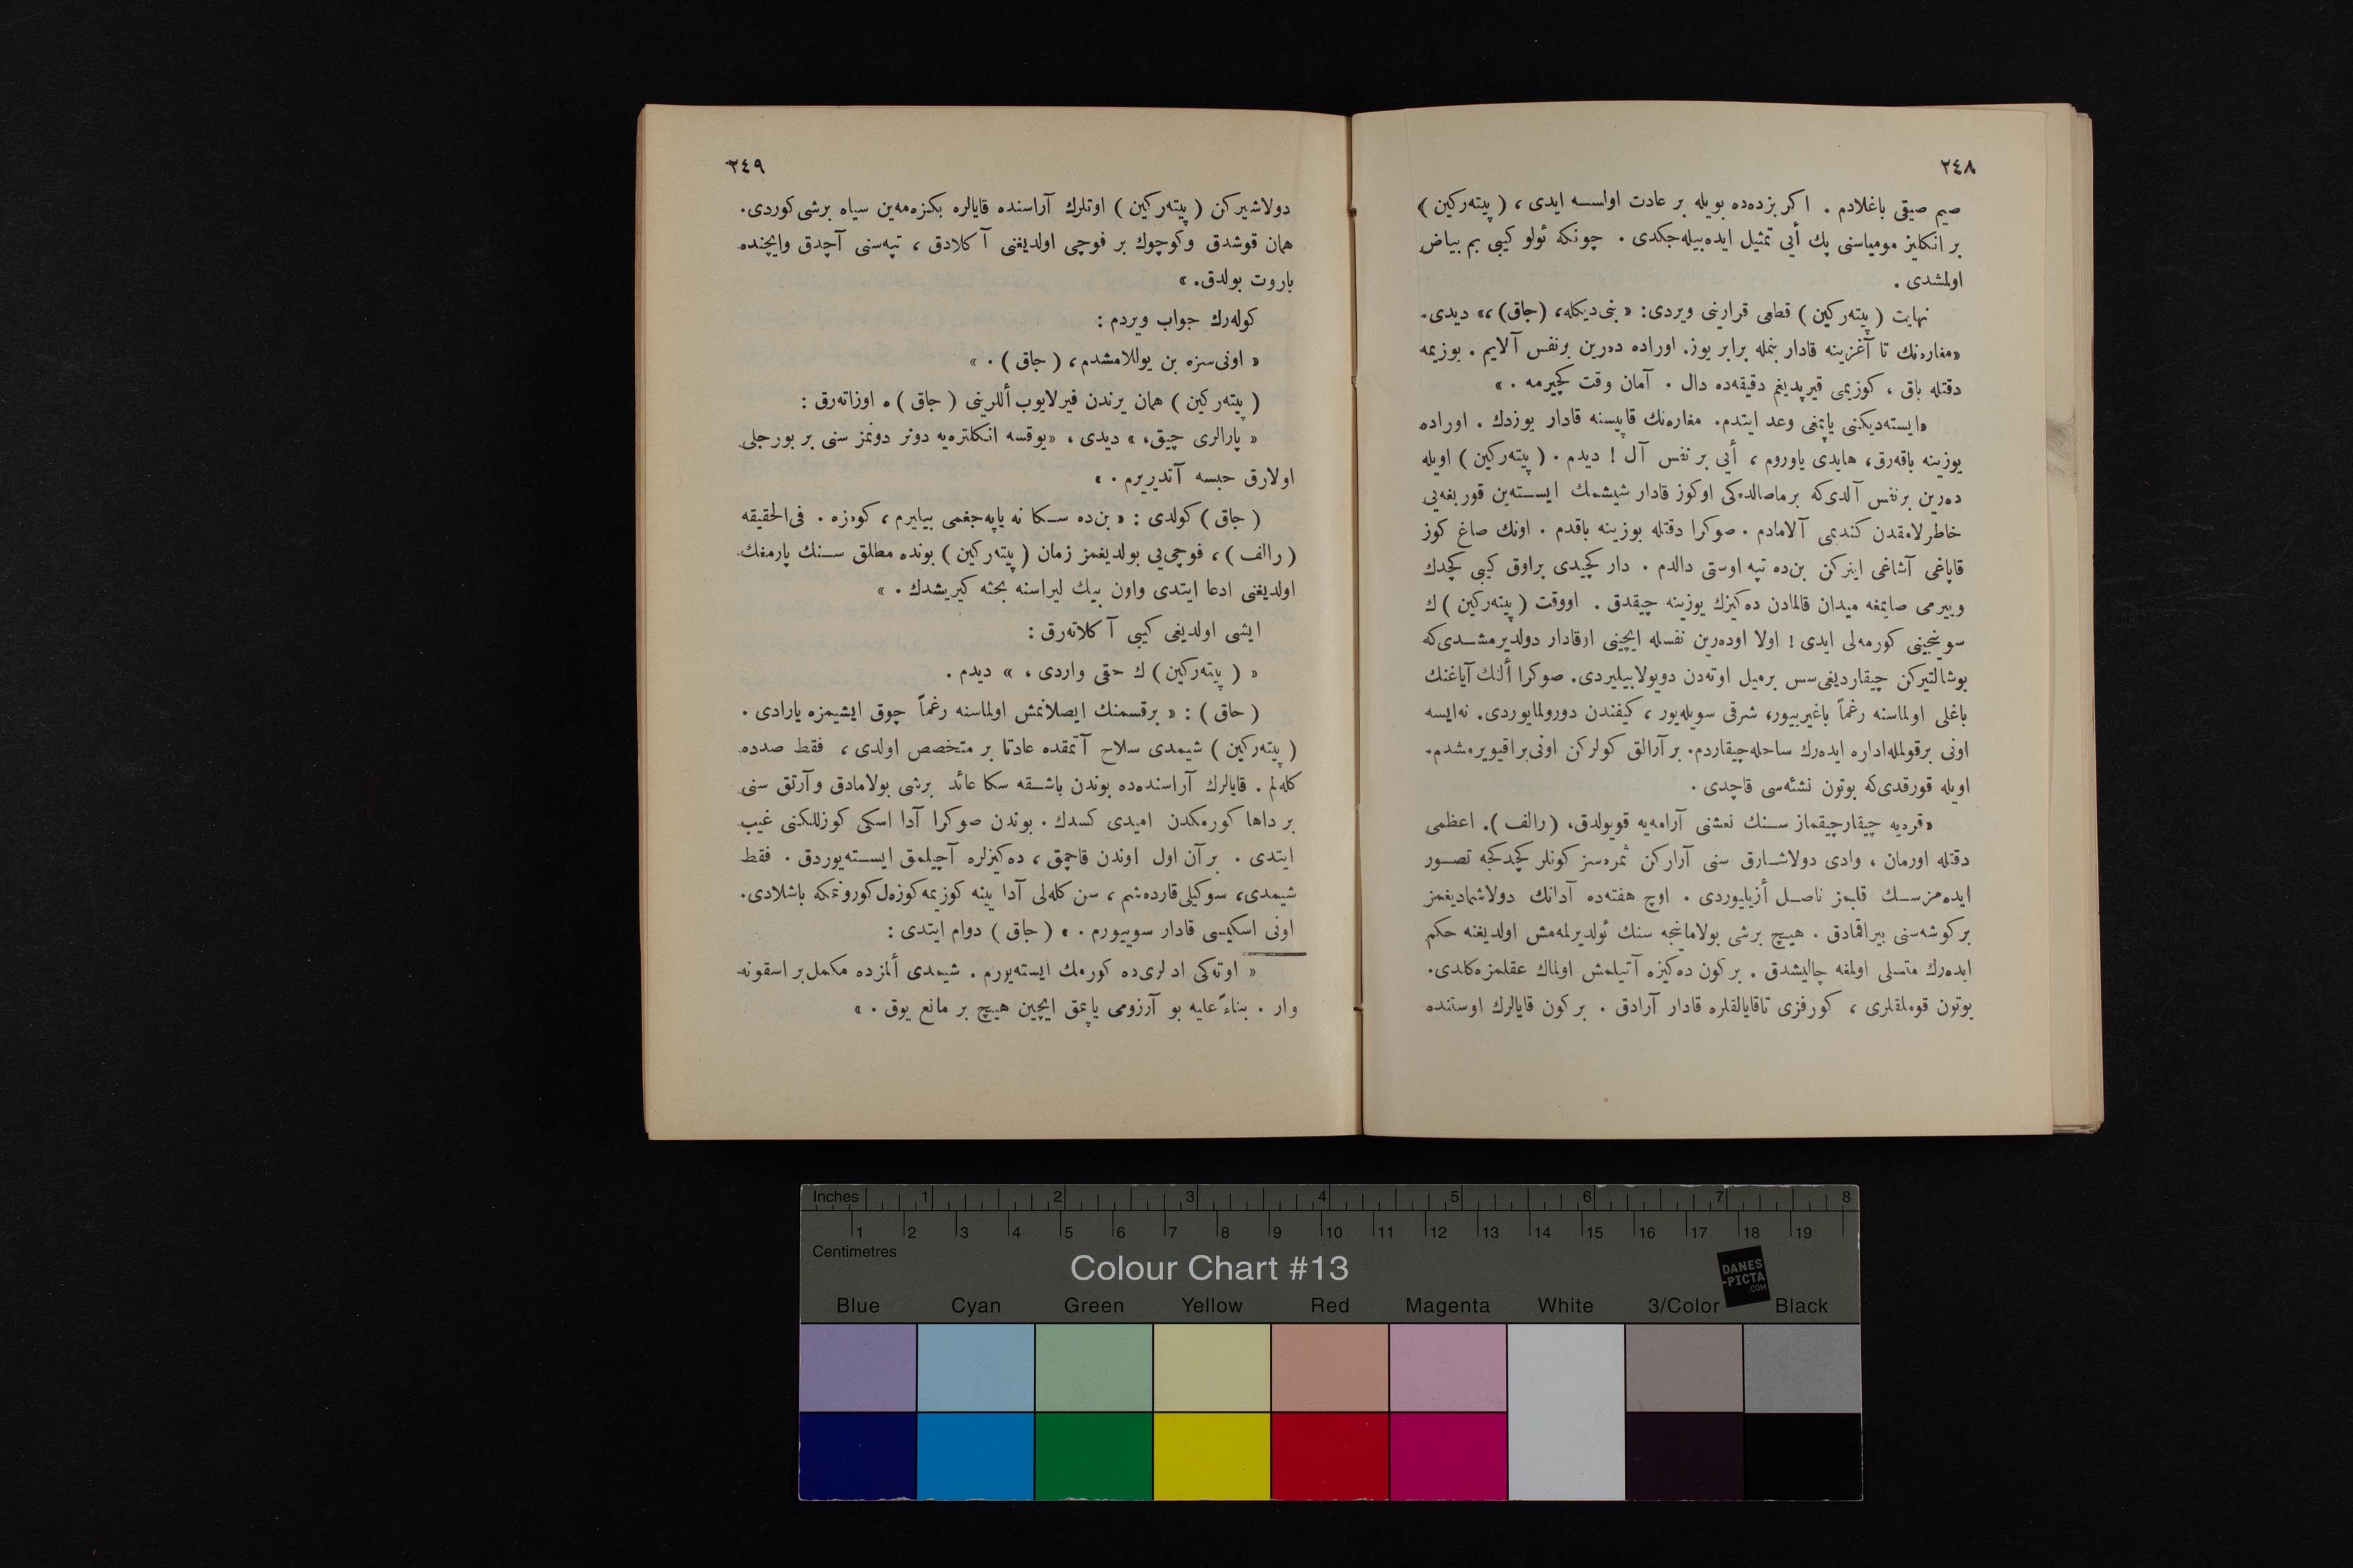 ٢٤٨
صيم صيقى باغلادم . اكر بزده‌ده بويله بر عادت اولسه ايدى ، ( پيته‌ركين )
بر انكليز مومياسنى پك أيى تمثيل ايده‌بيله‌جكدى . چونكه ئولو كيبى بم بياض
اولمشدى .
نهايت ( پيته‌ركين ) قطعى قرارينى ويردى: « بنى‌ديكله، (جاق) ،» ديدى.
«مغاره‌نك تا آغزينه قادار بنمله برابر يوز. اوراده ده‌رين برنفس آلايم . يوزيمه
دقتله باق ، كوزيمى قيرپديغم دقيقه‌ده دال . آمان وقت كچيرمه . »
«ايسته‌ديكنى ياپمغى وعد ايتدم. مغاره‌نك قاپيسنه قادار يوزدك . اوراده
يوزينه باقه‌رق، هايدى ياوروم ، أيى بر نفس آل ! ديدم . ( پيته‌ركين ) اويله
ده‌رين برنفس آلدى‌كه برماصالده‌كى اوكوز قادار شيشمك ايسته‌ين قوربغه‌يى
خاطرلامقدن كنديمى آلامادم . صوكرا دقتله يوزينه باقدم . اونك صاغ كوز
قاپاغى آشاغى اينركن بن‌ده تپه اوستى دالدم . دار كچيدى براوق كيبى كچدك
وييرمى صايمغه ميدان قالمادن ده‌كيزك يوزينه چيقدق . اووقت ( پيته‌ركين ) ك
سوينجينى كورمه‌لى ايدى ! اولا اوده‌رين نفسله ايچينى ارقادار دولديرمشدى‌كه
بوشالتيركن چيقارديغى‌سس برميل اوته‌دن دويولابيليردى. صوكرا أللنك آياغنك
باغلى اولماسنه رغماً باغيرييور، شرقى سويله‌يور ، كيفندن دورولمايوردى. نه‌ايسه
اونى برقولمله‌اداره ايده‌رك ساحله‌چيقاردم. بر آرالق كولركن اونى‌براقيويرمشدم.
اويله قورقدى‌كه بوتون نشئه‌سى قاچدى .
«قره‌يه چيقارچيقماز سنك نعشنى آرامه‌يه قويولدق، (رالف ). اعظمى
دقتله اورمان ، وادى دولاشارق سنى آراركن ثمره‌سز كونلر كچدكجه تصور
ايده‌مزسك قلبمز ناصل أزيلييوردى . اوچ هفته‌ده آدانك دولاشماديغمز
بركوشه‌سنى بيراقمادق . هيچ برشى بولاماينجه سنك ئولديرلمه‌مش اولديغنه حكم
ايده‌رك متسلى اولمغه چاليشدق . بركون ده‌كيزه آتيلمش اولماك عقلمزه‌كلدى.
بوتون قوملقلرى ، كورفزى تاقايالقلره قادار آرادق . بركون قايالرك اوستنده
٢٤٩
دولاشيركن ( پيته‌ركين ) اوتلرك آراسنده قايالره بكزه‌مه‌ين سياه برشى‌كوردى.
همان قوشدق وكوچوك بر فوچى اولديغنى آكلادق ، تپه‌سنى آچدق وايچنده
باروت بولدق. »
كوله‌رك جواب ويردم :
« اونى‌سزه بن يوللامشدم، ( جاق ) . »
( پيته‌ركين ) همان يرندن فيرلايوب أللرينى ( جاق ) ه اوزاته‌رق :
« پارالرى چيق، » ديدى ، «يوقسه انكلتره‌يه دونر دونمز سنى بر بورجلى
اولارق حبسه آتديريرم . »
( جاق ) كولدى : « بن‌ده سكا نه ياپه‌جغمى بيليرم ، كوه‌زه . فى‌الحقيقه
( رالف ) ، فوچى‌يى بولديغمز زمان ( پيته‌ركين ) بونده مطلق سنك پارمغك
اولديغنى ادعا ايتدى واون بيك ليراسنه بحثه كيريشدك . »
ايشى اولديغى كيبى آكلاته‌رق :
« ( پيته‌ركين ) ك حقى واردى ، » ديدم .
( جاق ) : « برقسمنك ايصلانمش اولماسنه رغماً چوق ايشيمزه يارادى .
( پيته‌ركين ) شيمدى سلاح آتمقده عادتا بر متخصص اولدى ، فقط صدده
كله‌لم . قايالرك آراسنده‌ده بوندن باشقه سكا عائد برشى بولامادق وآرتق سنى
بر داها كورمكدن اميدى كسدك . بوندن صوكرا آدا اسكى كوزللكنى غيب
ايتدى . برآن اول اوندن قاچمق ، ده‌كيزلره آچيلمق ايسته‌يوردق . فقط
شيمدى، سوكيلى‌قارده‌شم ، سن كله‌لى آدا يينه كوزيمه كوزه‌ل‌كورونمكه باشلادى.
اونى اسكيسى قادار سوييورم . » ( جاق ) دوام ايتدى :
« اوته‌كى ادلرى‌ده كورمك ايسته‌يورم . شيمدى ألمزده مكمل‌بر اسقونه
وار . بناءً عليه بو آرزومى ياپمق ايچين هيچ بر مانع يوق . »
Inches 1 2 3 4 5 6 7 8
1 2 3 4 5 6 7 8 9 10 11 12 13 14 15 16 17 18 19
Centimetres
Colour Chart #13
DANES
-PICTA
.COM
Blue Cyan Green Yellow Red Magenta White 3/Color Black